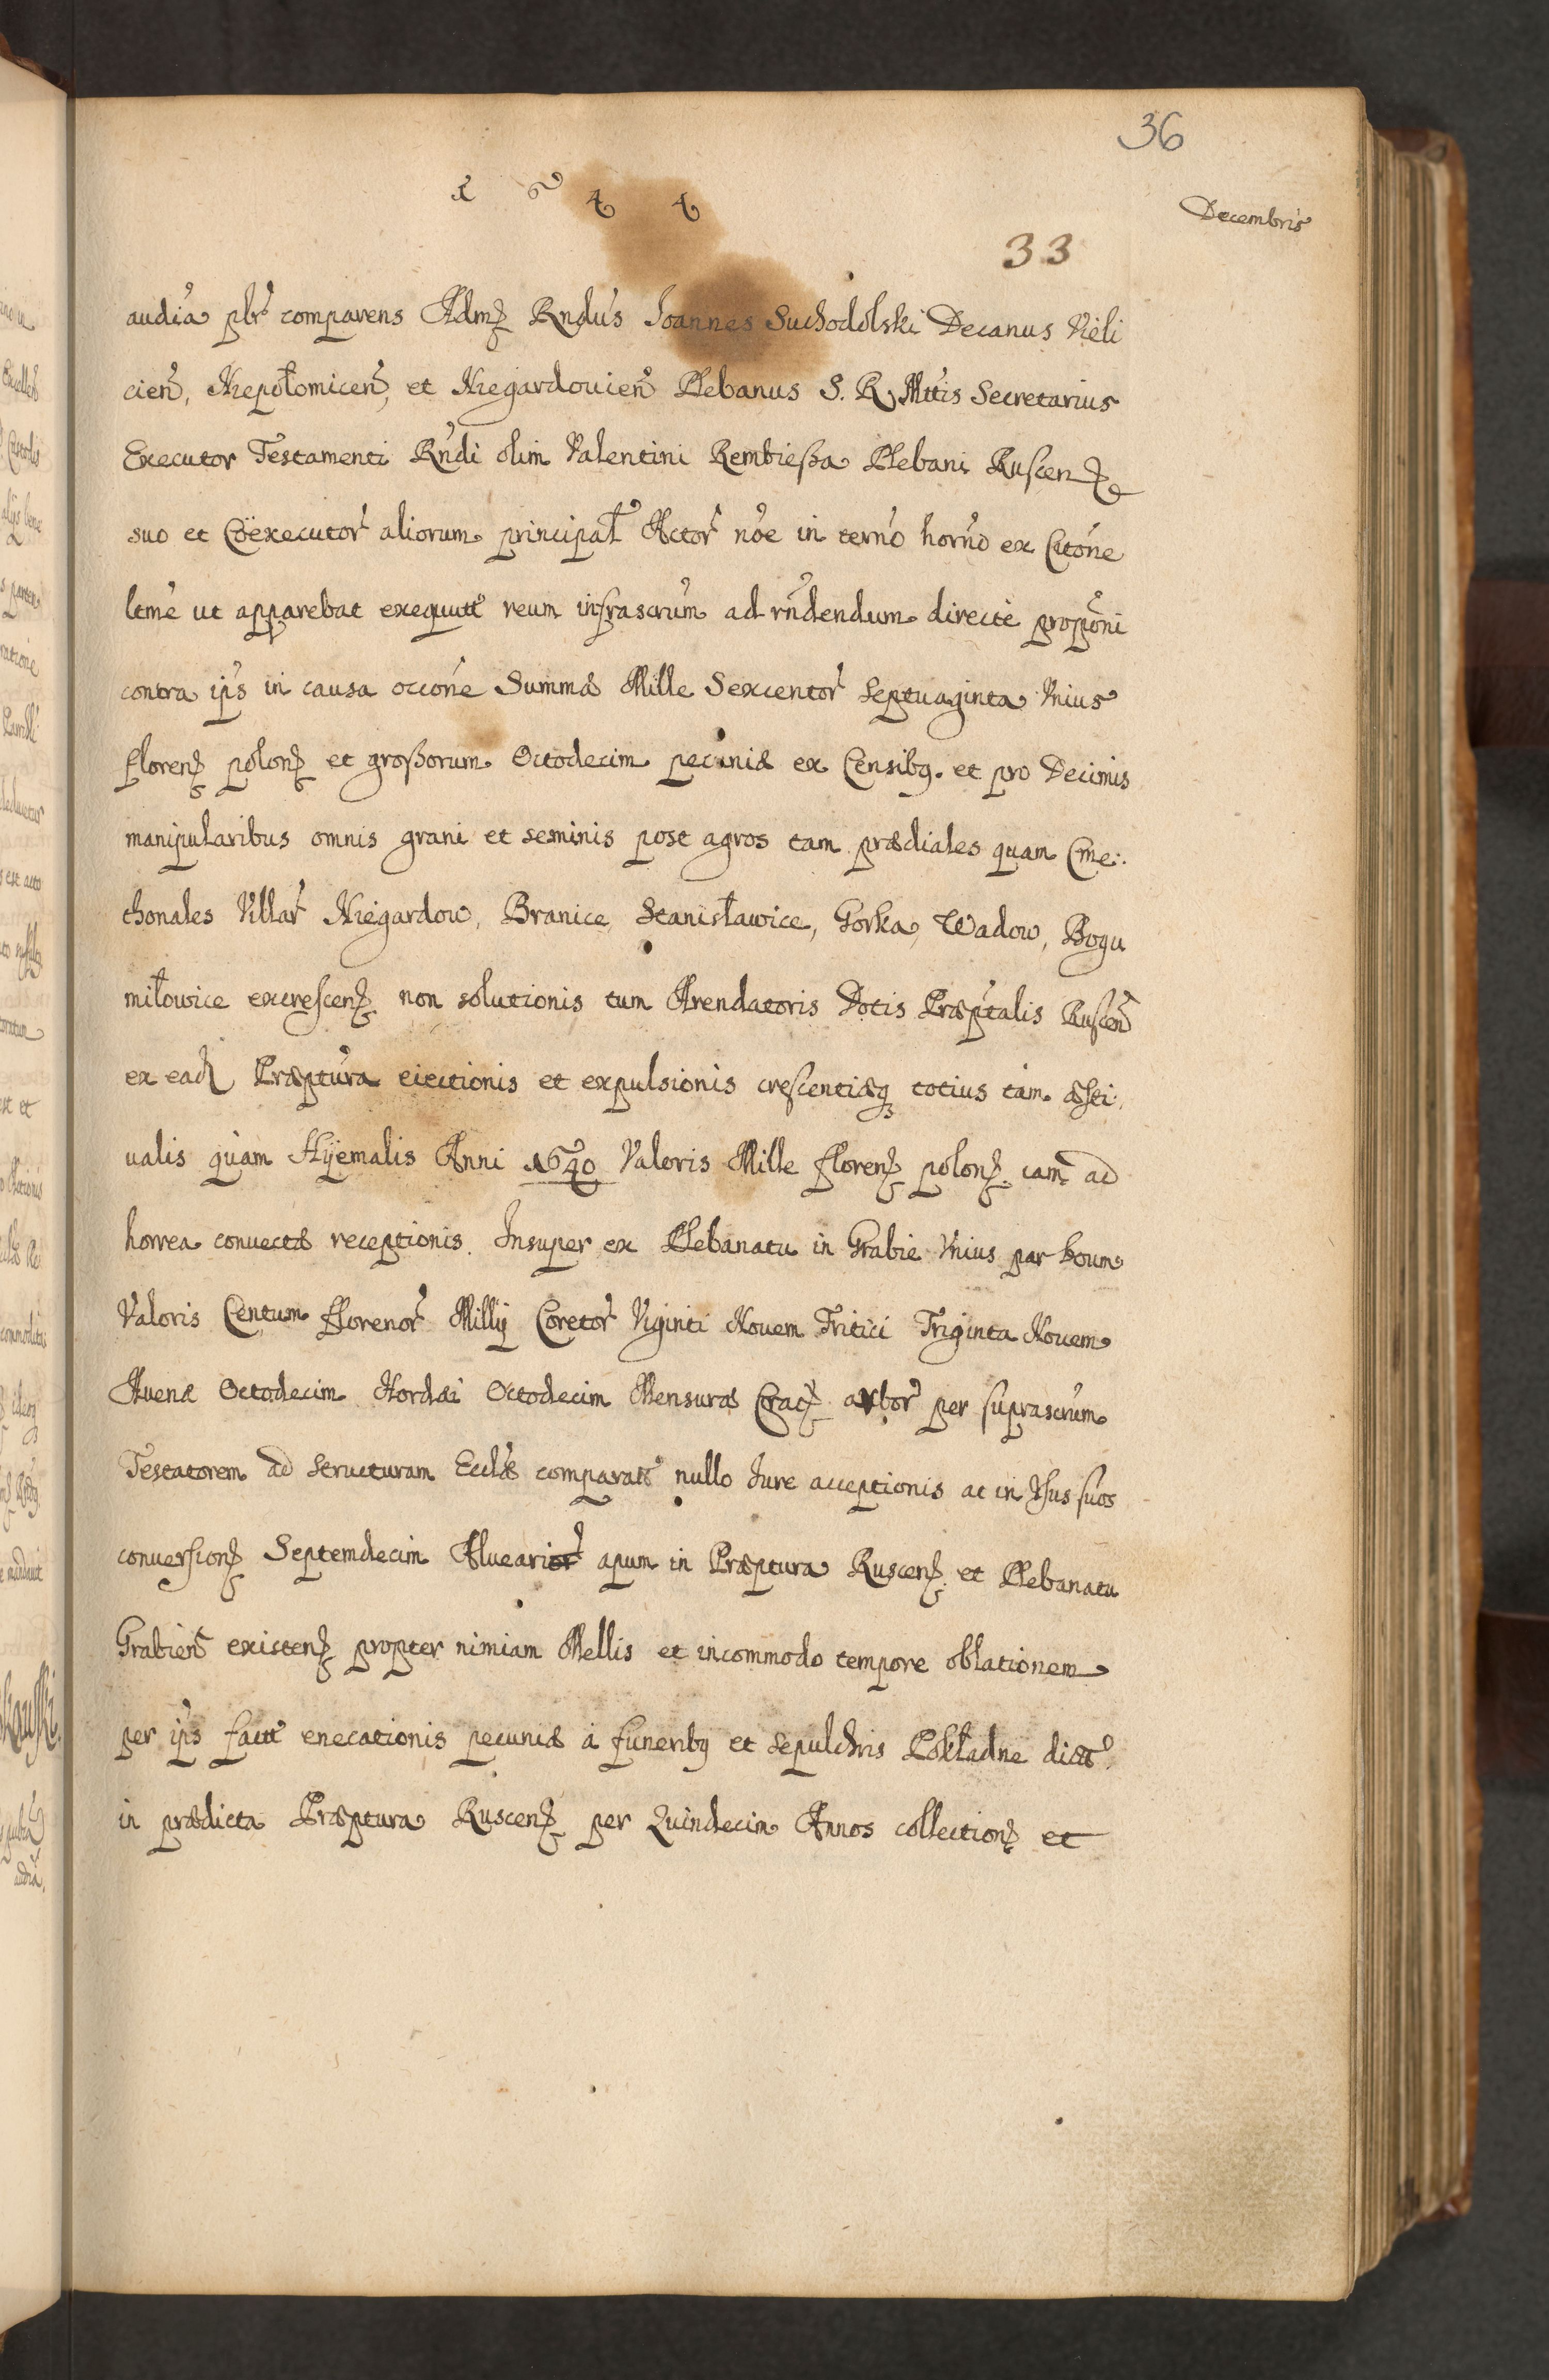 36
1 6 4 4
Decembris
33
audia pbr comparens Adm Rndus Joannes Suchodolski Decanus Vieli
cien, Niepołomicen, et Niegardouien Plebanus S. R. Mttis Secretarius
Executor Testamenti Rndi olim Valentini Rembiesza Plebani Ruscen
suo et Coëxecutor aliorum principal Actor noe in termo horno ex Citone
ltme ut apparebat exequut reum infrascrum ad rndendum directe proponi
contra ips in causa occone Summæ Mille Sexcentor Septuaginta Vnius
floren polon et großorum Octodecim pecuniæ ex Censibq. et pro Decimis
manipularibus omnis grani et seminis post agros tam prædiales quam Cme:
thonales Villar Niegardow, Branice, Stanisławice, Gorka, Wadow, Bogu
miłowice excrescen non solutionis tum Arendatoris Dotis Præptalis Ruscen
ex ead Præptura eiectionis et expulsionis crescentiæq totius tam æsti
ualis quam Hÿemalis Anni 1640 Valoris Mille floren polon. iam ad
horrea conuectæ receptionis. Insuper ex Plebanatu in Grabie Vnius par boum
Valoris Centum florenor Millij Coretor Viginti Nouem Tritici Triginta Nouem
Auenæ Octodecim Hordæi Octodecim Mensuræ Crac arbor per suprascrum
Testatorem ad structuram Ecclæ comparat nullo Iure acceptionis ac in Vsus suos
conuersion Septemdecim Aluearior apum in Præptura Ruscen. et Plebanatu
Grabien existen propter nimiam Mellis et incommodo tempore oblationem
per ips fact enecationis pecuniæ à funeribq et sepulchris Pokładne dict
in prædicta Præptura Ruscen per Quindecim Annos collection et